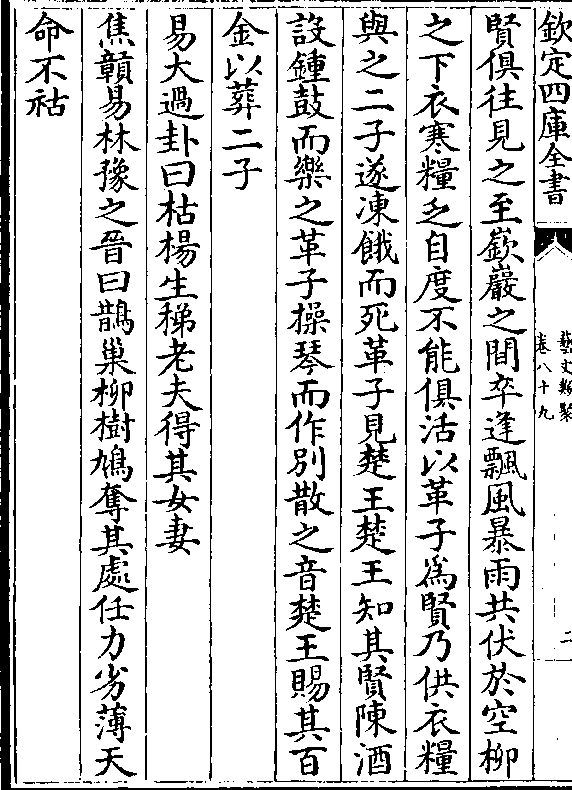 欽定四庫全書
藝文類聚
卷八十九
二
賢俱往見之至嶔巖之間卒逢飄風暴雨共伏於空柳
之下衣寒糧乏自度不能俱活以革子為賢乃供衣糧
與之二子遂凍餓而死革子見楚王楚王知其賢陳酒
設鍾鼓而樂之革子操琴而作别散之音楚王賜其百
金以葬二子
易大過卦曰枯楊生稊老夫得其女妻
焦贛易林豫之晉曰鵲巢柳樹鳩奪其處任力劣薄天
命不祜